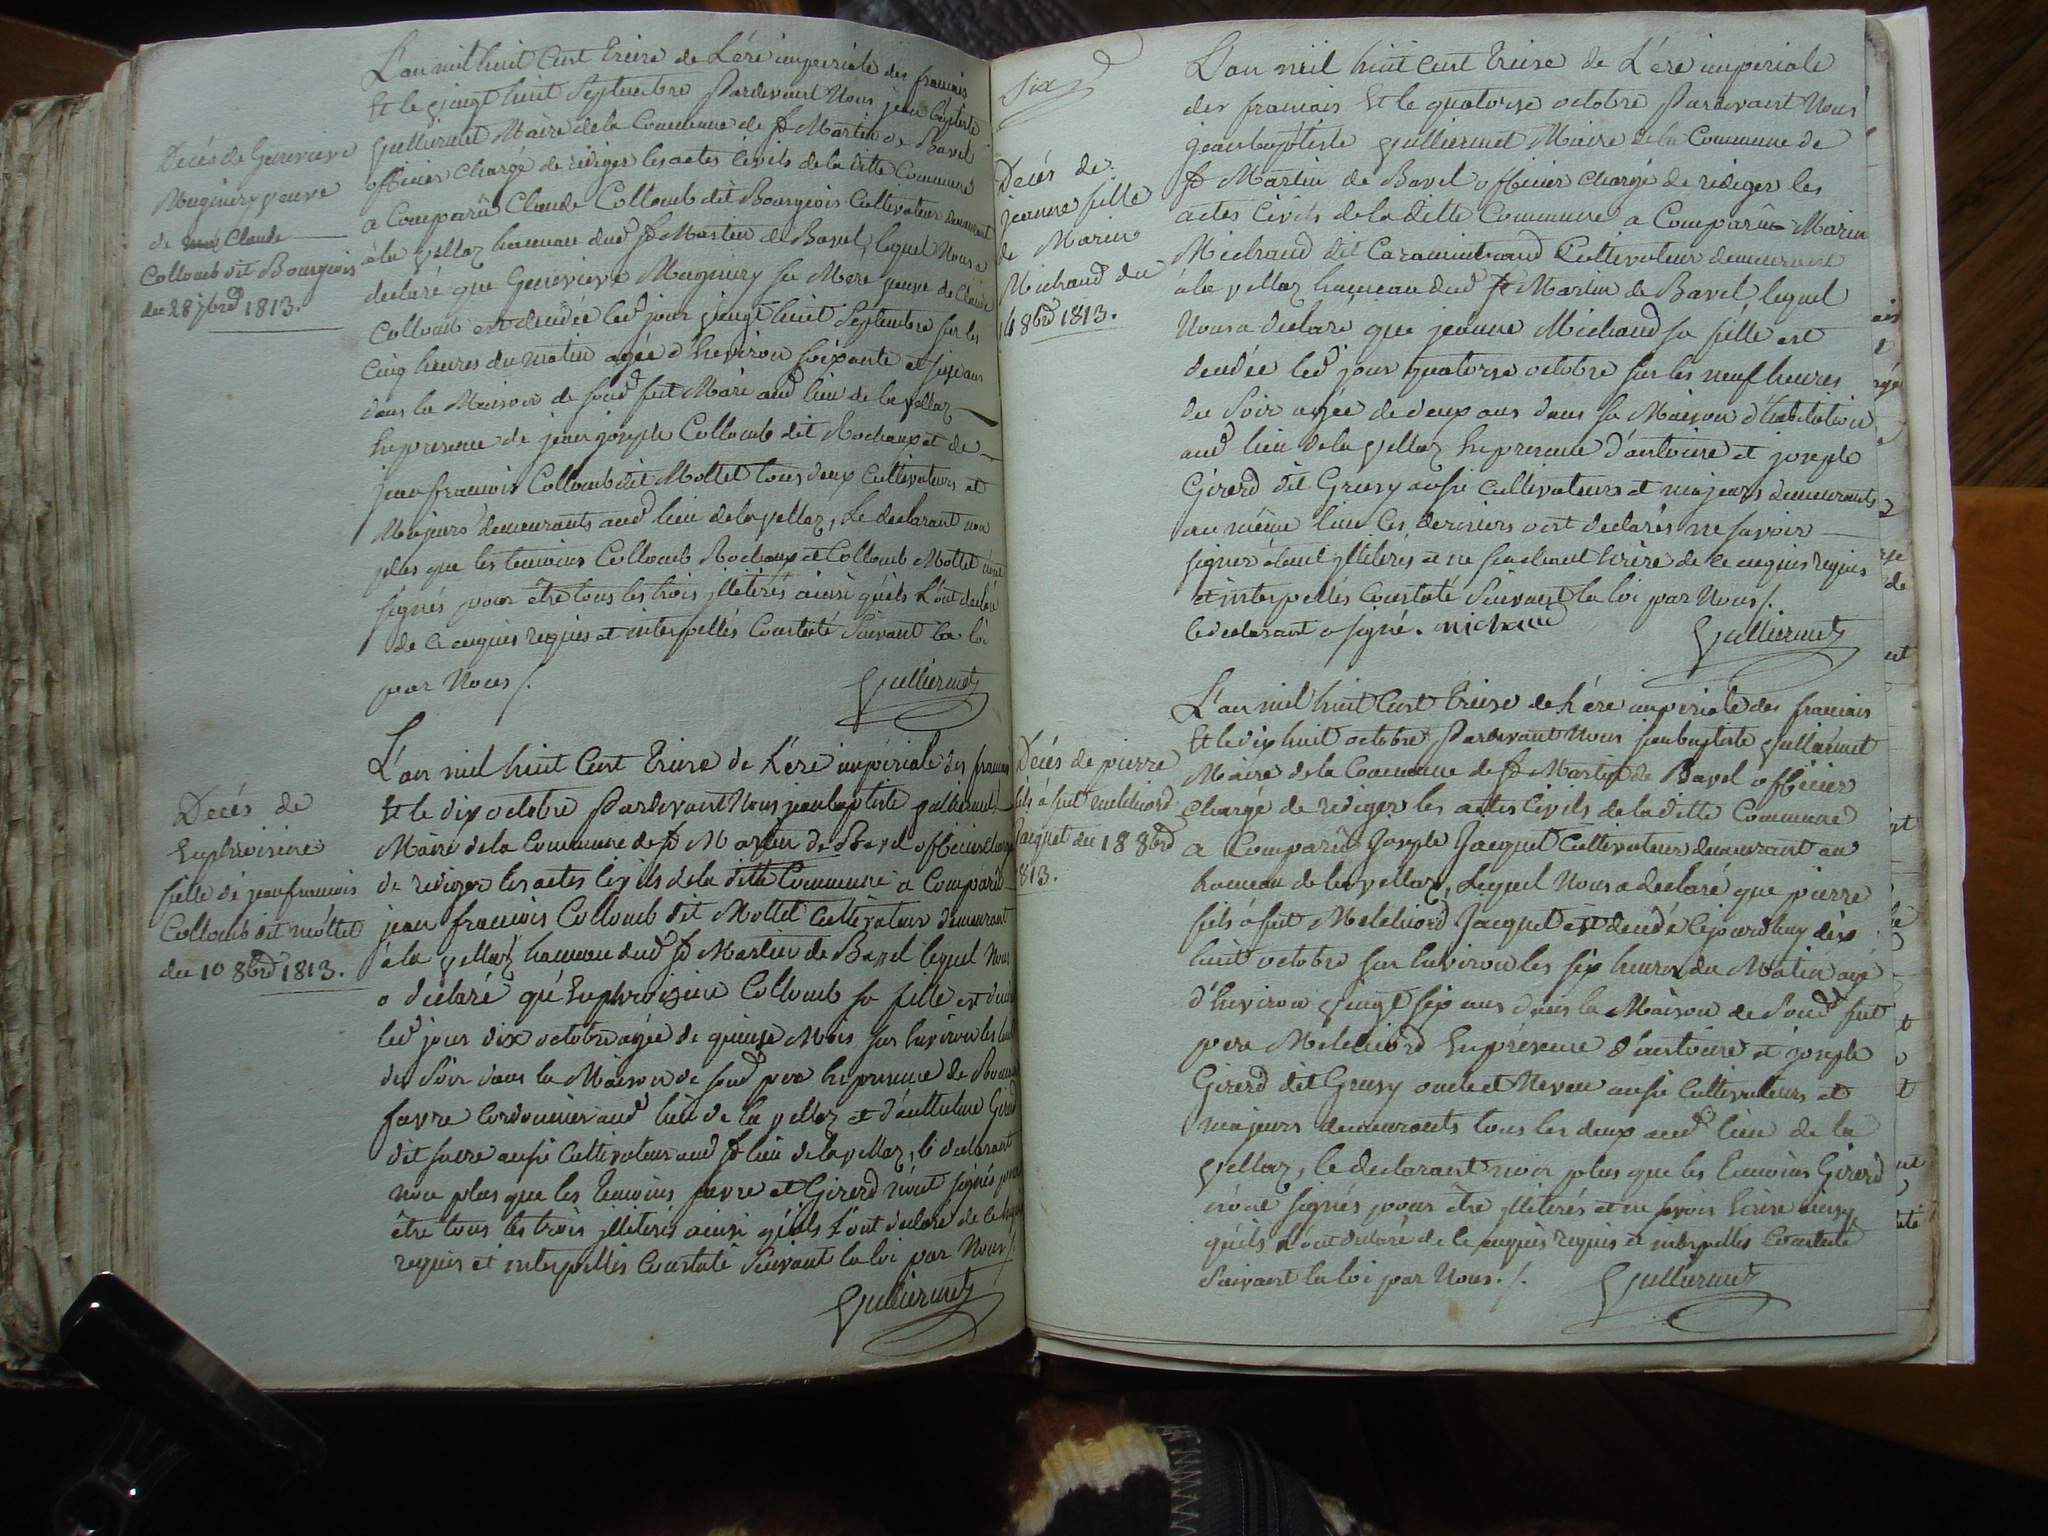 Decés de Genevieve
Muginiery veuve
de Claude
Collomb dit Bourgeois
du 28 7brd 1813.
L'an mil huit Cent Treise de L'ére imperiale des francais
Et le vingt huit Septembre Pardevant Nous jean baptiste
Gulliermet Maire de la Commune de St Martin de Bavel
officier chargé de rediger les actes Civils de la ditte Commune
a Comparû Claude Collomb dit Bourgeois Cultivateur demeurant
à la vellaz hameau dud St Martin de Bavel, lequel Nous a
declaré que Genevieve Muginiery sa Mere veuve de Claude
Collomb est decedée led jour vingt huit Septembre sur les
Cinq heures du matin agée d'heviron soixante et seise ans
dans la Maison de soud feut Mari aud lieu de la vellaz
En presence de jean joseph Collomb dit Rochaux et de
jean francois Collomb dit Mottet tous deux Cultivateurs et
Majeurs demeurants aud lieu de la vellaz, Le declarant non
plus que les temoins Collomb Rochaux et Collomb Mottet n'ont
signés pour être tous les trois jlliterés ainsi qu'éls L'ont declaré
de ce enquis requis et interpellés Constaté Suivant la loi
par Nous /.
Gulliermet
Decés de
Euphroisine
fille de jean francois
Collomb dit mottet
du 10 8brd 1813.
L'an mil huit Cent Treise de L'ére impériale des francais
Et le dix octobre Pardevant Nous jean baptiste gulliermet
Maire de la Commune de St Martin de Bavel officier chargé
de rediger les actes Civils de la ditte Commune a Comparû
jean francois Collomb dit Mottet Cultivateur demeurant
à la vellaz hameau dud St Martin de Bavel lequel Nous
a déclaré qu'Euphroisine Collomb sa fille est decedée
led jour dix octobre agée de quinse Mois sur Environ les huit
du Soir dans la Maison de soud pere En presence de
favre Cordonnier aud lieu de la vellaz et d'anthelme Girerd
dit sucre aussi Cultivateur aud St lieu de la vellaz, le declarant
non plus que les Temoins favre et Girerd n'ont signés pour
être tous les trois jlliterés ainsi qu'éls L'ont declaré de ce enquis
requis et interpellés Constaté Suivant la loi par Nous /.
Gulliermet
Six
Decés de
jeanne fille
de Marin
Michaud du
14 8brd 1813.
L'an mil huit Cent Treise de L'ére imperiale
des francais Et le quatorse octobre Pardevant Nous
jean baptiste gulliermet Maire de la Commune de
St Martin de Bavel officier chargé de rediger les
actes Civils de la ditte Commune a Comparû Marin
Michaud dit Caramintrand Cultivateur demeurant
à la vellaz hameau dud St Martin de Bavel, lequel
Nous a declaré que jeanne Michaud sa fille est
decedée led jour quatorse octobre sur les neuf heures
du Soir agée de deux ans dans sa Maison d'habitation
aud lieu de la vellaz En presence d'antoine et joseph
Girerd dit Grusy aussi Cultivateurs et majeurs demeurants
au même lieu les derniers ont declarés ne savoir
signer étant jlliterés et ne sachant Ecrire de ce enquis requis
et interpellés Constaté Suivant la loi par Nous /.
le declarant a signé. michaud
Gulliermet
Decés de pierre
fils à feut melchiord
Jacquet du 18 8brd
1813.
L'an mil huit Cent Treise de L'ére imperiale des francais
Et le dix huit octobre Pardevant Nous jean baptiste gulliermet
Maire de la Commune de St Martin de Bavel officier
chargé de rediger les actes Civils de la ditte Commune
a Comparû Joseph Jacquet Cultivateur demeurant au
hameau de la vellaz, Lequel Nous a declaré que pierre
fils à feut Melchiord Jacquet est decedé Cejourdhuy dix
huit octobre sur Environ les six heures du Matin agé
d'heviron vingt six ans dans la Maison de Soud feut
pere Melchiord En présence d'antoine et joseph
Girerd dit Grusy oncle et Neveu aussi Cultivateurs et
majeurs demeurants tous les deux aud lieu de la
vellaz, le declarant non plus que les Temoins Girerd
n'ont signés pour être jlliterés et ne savoir Ecrire ainsy
qu'éls L'ont declaré de ce enquis requis et interpellés Constaté
Suivant la loi par Nous. /.
Gulliermet